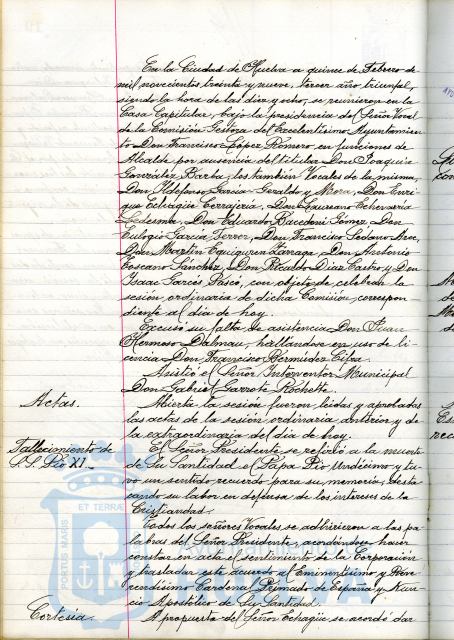 En la Ciudad de Huelva a quince de Febrero de
mil novecientos treinta y nueve, tercer año triunfal,
siendo la hora de las diez y ocho, se reunieron en la
Casa Capitular, bajo la presidencia del Señor Vocal
de la Comisión Gestora del Excelentísimo Ayuntamien
to Don Francisco López Romero en funciones de
Alcalde por ausencia del titular Don Joaquín
González Barba, los también Vocales de la misma,
Don Ildefonso García Geraldo y Mora, Don Enri
que Echagüe Terrajería, Don Laureano Echevarría
Ledesma, Don Eduardo Bacedoni Gómez, Don
Eulogio García Ferrer, Don Francisco Sedano Arce,
Don Martín Eguiguren Zárraga, Don Antonio
Toscano Sánchez, Don Ricardo Díaz Castro y Don
Isaac Garcés Pasco, con objeto de celebrar la
sesión ordinaria de dicha Comisión, correspon
diente al día de hoy.
Excusó su falta de asistencia Don Juan
Hermoso Dalmau, hallándose en uso de li
cencia Don Francisco Bermúdez Cifra.
Asistió el Señor Interventor Municipal
Don Gabriel Garrote Rochette.
Actas. Abierta la sesión fueron leídas y aprobadas
las actas de la sesión ordinaria anterior y de
la extraordinaria del día de hoy.
Fallecimiento de El Señor Presidente se refirió a la muerte
S.S. Pío XI. de Su Santidad el Papa Pío Undécimo y tu
vo un sentido recuerdo para su memoria, desta
cando su labor en defensa de los intereses de la
Cristiandad.
Todos los señores Vocales se adhirieron a las pa
labras del Señor Presidente, acordándose hacer
constar en acta el sentimiento de la Corporación
y trasladar este acuerdo al Eminentísimo y Reve
rendísimo Cardenal Primado de España y Nun
cio Apostólico de Su Santidad.
Cortesía. A propuesta del Señor Echagüe se acordó dar
PORTUS MARIS ET TERRÆ